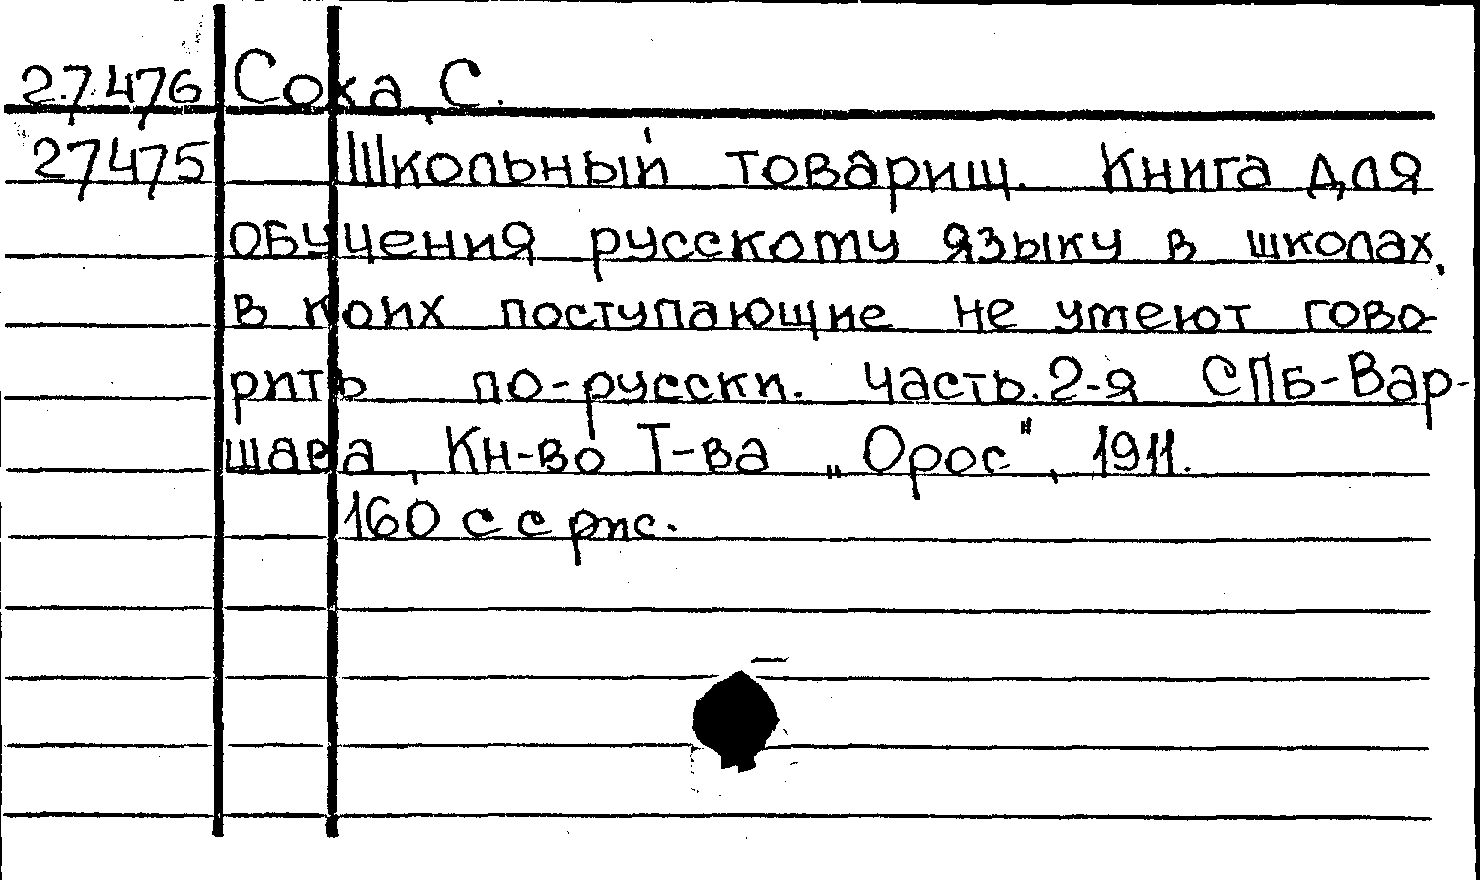 27476 Сока, С.
27475 Школьный товарищ. Книга для
обучения русскому языку в школах,
в коих поступающие не умеют гово-
рить по-русски. Часть.2-я СПБ-Вар-
шава, Кн-во Т-ва „Орос", 1911.
160 с с рис.